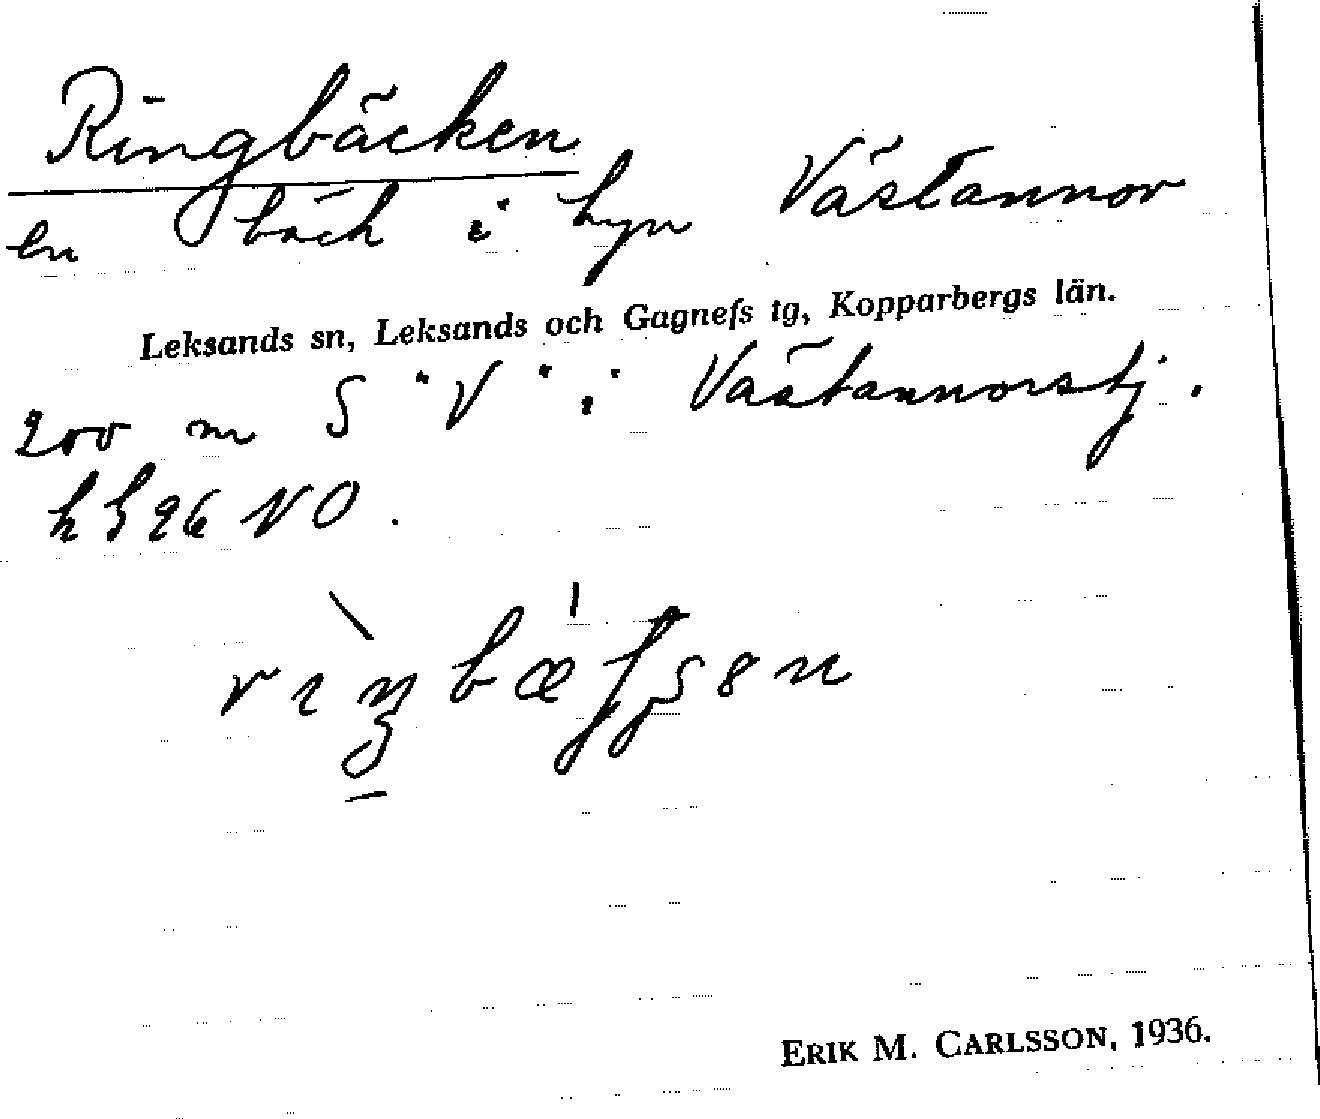 Ringbäcken
en bäck i byn Västannor
Leksands sn, Leksands och Gagnefs tg, Kopparbergs län.
200 m S "V" i Västannorstj.
NO.
ERIK M. CARLSSON, 1936.